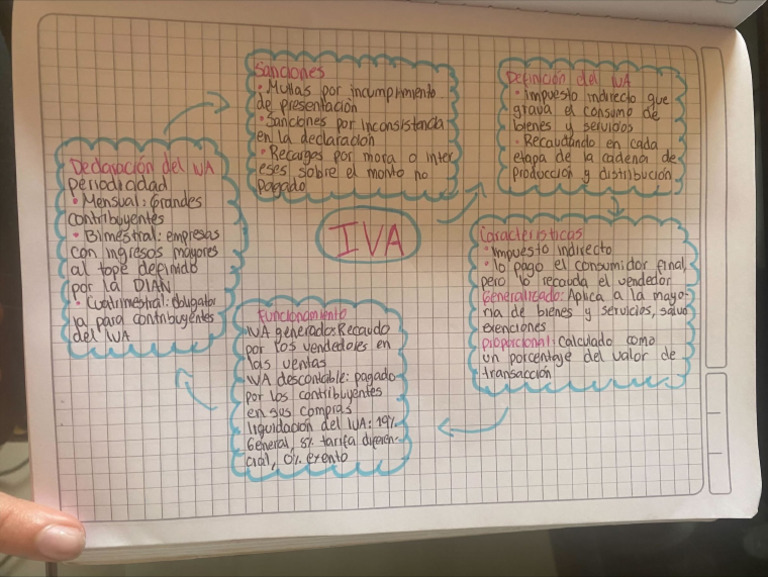 IVA
Definición del IVA
• Impuesto indirecto que
grava el consumo de
bienes y servicios
• Recaudando en cada
etapa de la cadena de
producción y distribución
Características
• Impuesto indirecto
• lo pago el consumidor final,
pero lo recauda el vendedor
Generalizado: Aplica a la mayo-
ria de bienes y servicios, salvo
exenciones
proporcional: calculado como
un porcentaje del valor de
transacción
Funcionamiento
IVA generado: Recaudo
por los vendedores en
las ventas
IVA descontable: pagado
por los contribuyentes
en sus compras
liquidación del IVA: 19%
General, 5% tarifa diferen-
cial, 0% exento
Declaración del IVA
periodicidad
• Mensual: Grandes
contribuyentes
• Bimestral: empresas
con ingresos mayores
al tope definido
por la DIAN
• Cuatrimestral: obligator
ia para contribuyentes
del IVA
Sanciones
• Multas por incumplimiento
de presentación
• Sanciones por inconsistencia
en la declaración
• Recargos por mora o inter
eses sobre el monto no
pagado